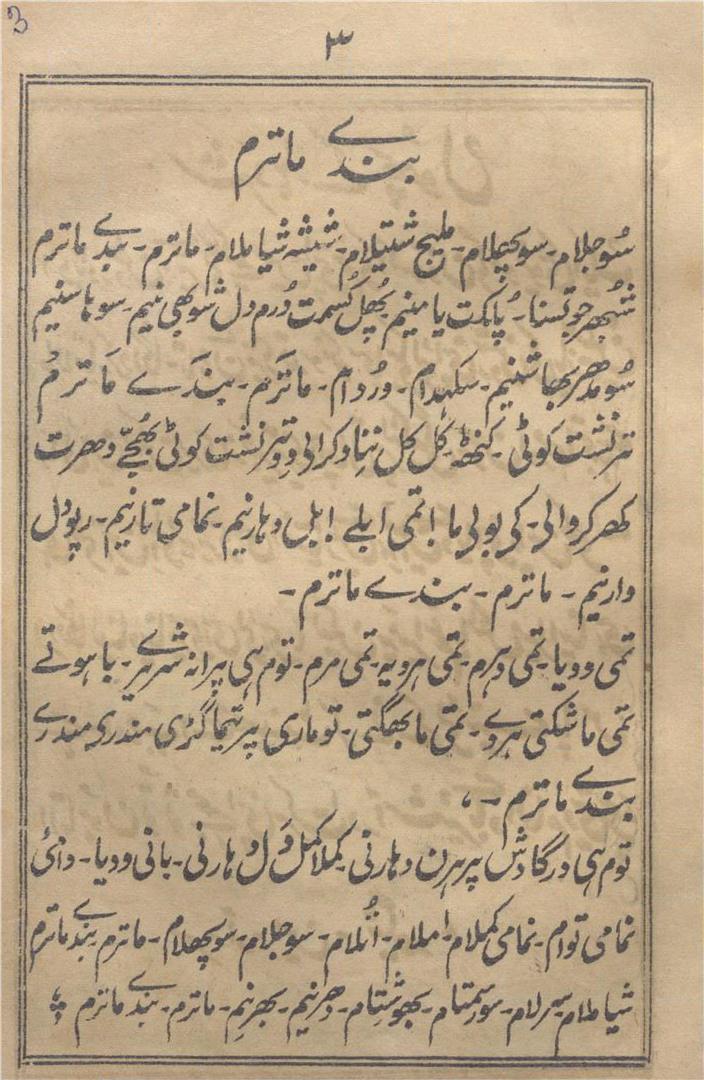 3
۳
بندے ماترم
سُوجلام۔ سوپھلام۔ ملیج شیتلام۔ شیشہ شیاملام۔ ماترم۔ بندے ماترم
شُبھر جوتسنا۔ پُلکت یا منیم پُھل کُسمت دُرم دل شوبھی نیم۔ سوہاسنیم
سُومدھر بھاشنیم۔ سکہدام۔ وردام۔ ماتَرَم۔ بندَے مَاترمُ
ترنشت کوٹی۔ کنٹھ کل کل ننا وکرالی ودترنشت کوٹی بُھجےّ دھرت
کھر کروالی۔ کی بولی ما! تمی ابلے! بل دہارنیم۔ نمامی تارنیم۔ رپودل
وارنیم۔ ماترم۔ بندے ماترم۔
تمی ودیا۔ تمی دہرم۔ تمی ہرویہ۔ تمی مرم۔ توم ہی پرانہ شریرے۔ باہوتے
تمی ماشکتی ہردے۔ تمی مابھگتی۔ توماری پرتیما گڑی مندری مندرے
بندے ماترم۔،
توم ہی درگا دش پرہرن دہارنی کملا کمل دَل وہارنی۔ بانی ودیا۔ دائی
نمامی توام۔ نمامی کملام۔ املام۔ اتُلام۔ سوجلام۔ سوپھلام۔ ماترم بندے ماترم
شیاملام۔ سرلام۔ سوسمتام۔ بھوشتام۔ دھرنیم۔ بھرنِم۔ ماترم۔ بندے ماترم